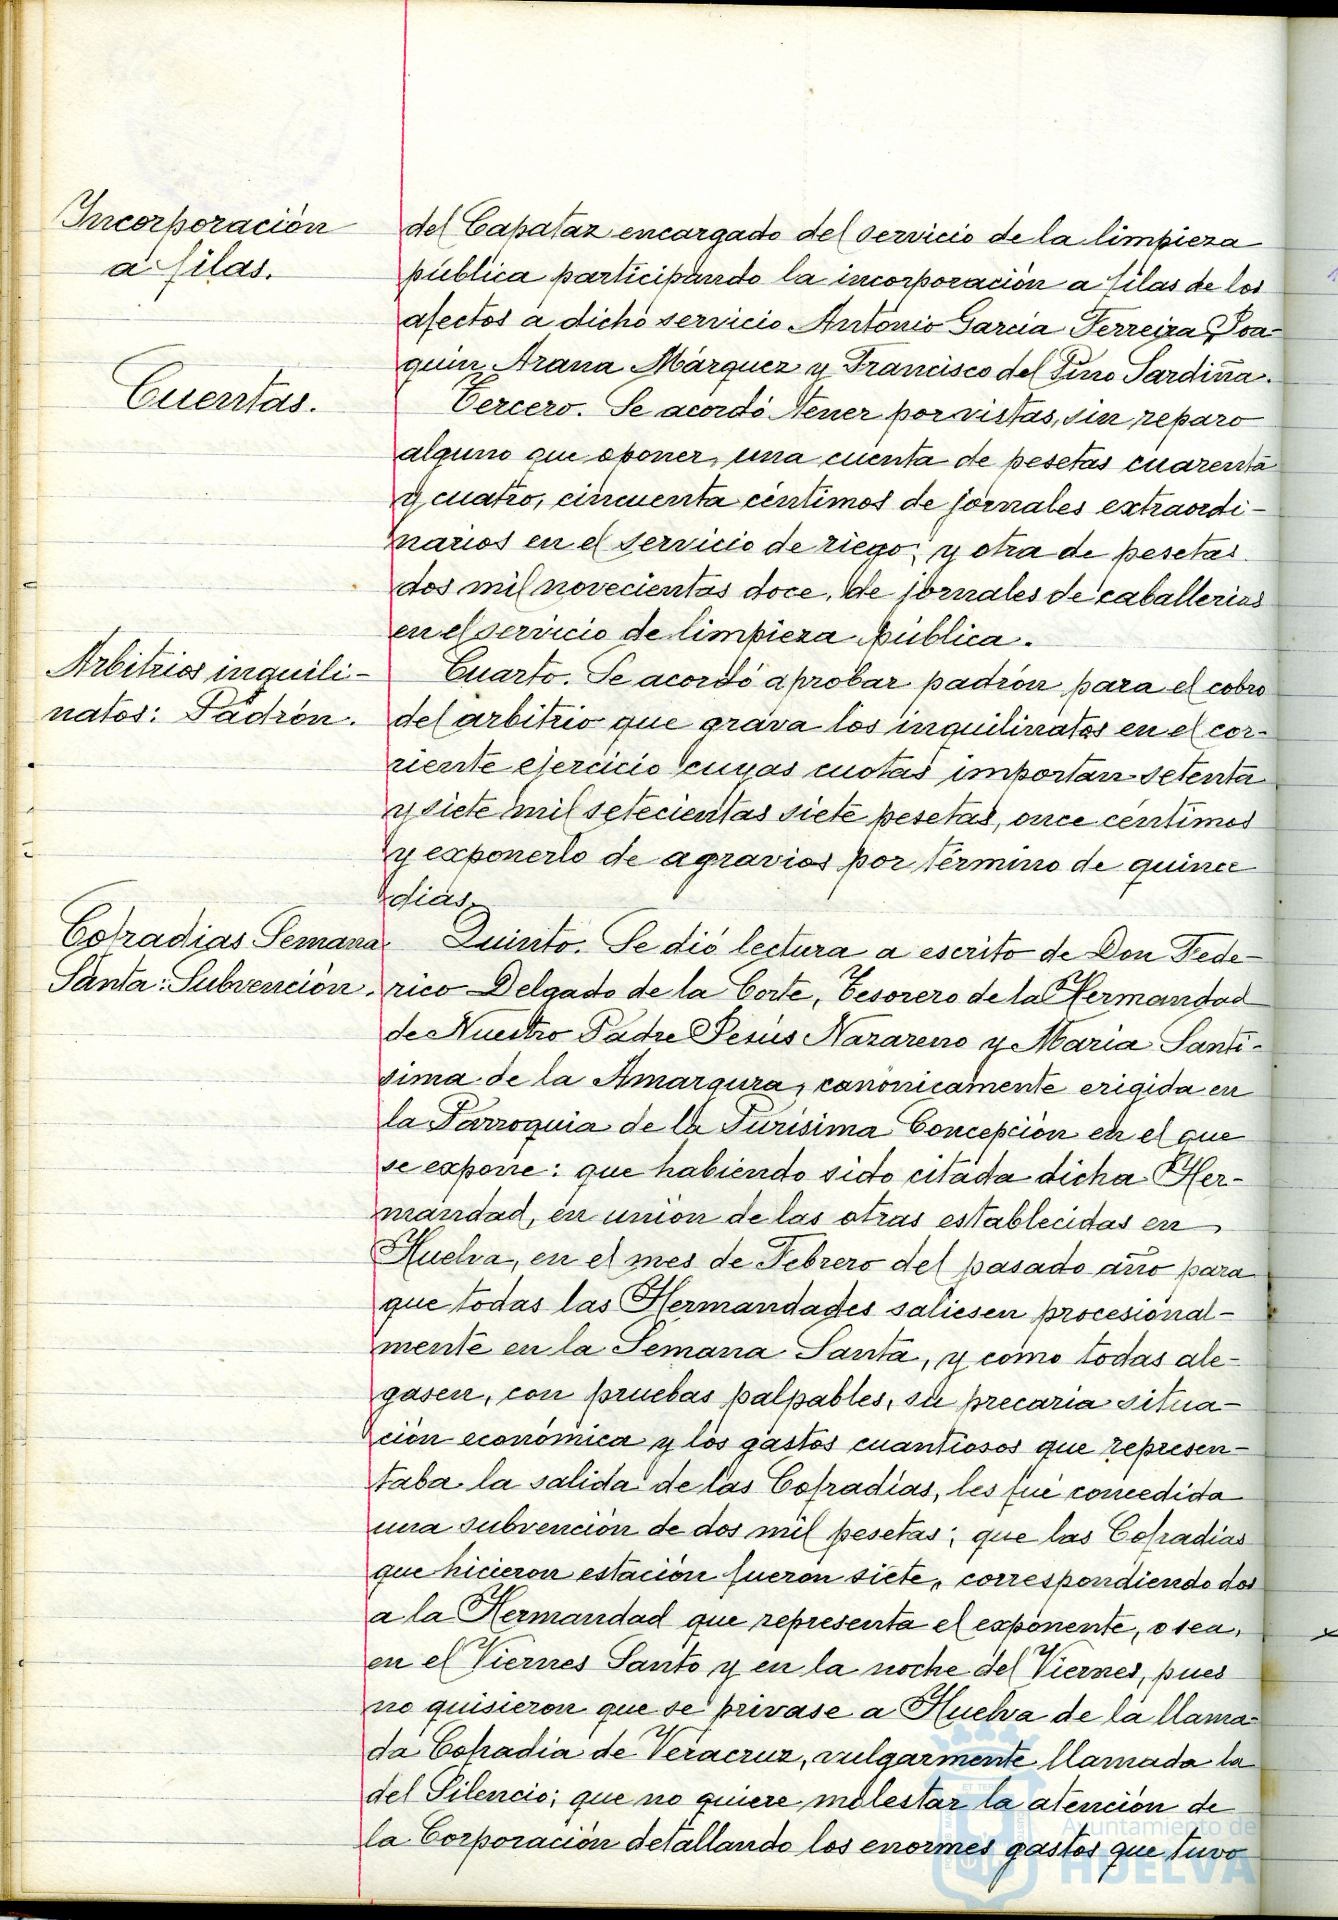 Incorporación
a filas.
del Capataz encargado del servicio de la limpieza
pública participando la incorporación a filas de los
afectos a dicho servicio Antonio García Ferreira, Joa-
quin Arana Márquez y Francisco del Pino Sardiña.
Cuentas.
Tercero. Se acordó tener por vistas, sin reparo
alguno que oponer, una cuenta de pesetas cuarenta
y cuatro, cincuenta céntimos de jornales extraordi-
narios en el servicio de riego; y otra de pesetas
dos mil novecientas doce, de jornales de caballerias
en el servicio de limpieza pública.
Arbitrios inquili-
natos: Padrón.
Cuarto. Se acordó aprobar padrón para el cobro
del arbitrio que grava los inquilinatos en el cor-
riente ejercicio cuyas cuotas importan setenta
y siete mil setecientas siete pesetas, once céntimos
y exponerlo de agravios por término de quince
dias.
Cofradias Semana
Santa: Subvención.
Quinto. Se dió lectura a escrito de Don Fede-
rico Delgado de la Corte, Tesorero de la Hermandad
de Nuestro Padre Jesús Nazareno y Maria Santi-
sima de la Amargura, canónicamente erigida en
la Parroquia de la Purísima Concepción en el que
se expone: que habiendo sido citada dicha Her-
mandad, en unión de las otras establecidas en
Huelva, en el mes de Febrero del pasado año para
que todas las Hermandades saliesen procesional-
mente en la Semana Santa, y como todas ale-
gasen, con pruebas palpables, su precaria situa-
ción económica y los gastos cuantiosos que represen-
taba la salida de las Cofradías, les fué concedida
una subvención de dos mil pesetas; que las Cofradías
que hicieron estación fueron siete, correspondiendo dos
a la Hermandad que representa el exponente, o sea,
en el Viernes Santo y en la noche del Viernes, pues
no quisieron que se privase a Huelva de la llama-
da Cofradia de Veracruz, vulgarmente llamada la
del Silencio; que no quiere molestar la atención de
la Corporación detallando los enormes gastos que tuvo
Ayuntamiento de
HUELVA